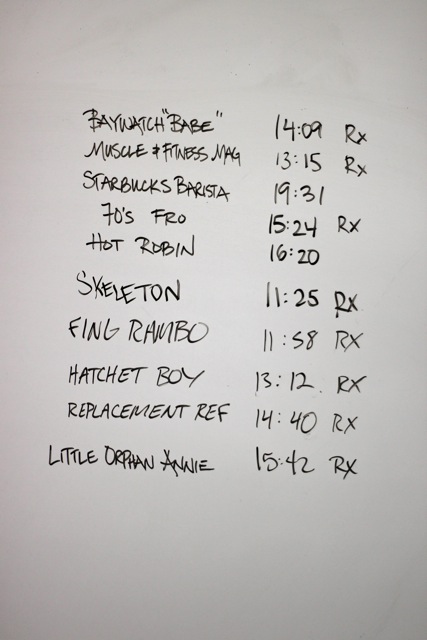 BAYWATCH "BABE" 14:09 Rx
MUSCLE & FITNESS MAG 13:15 Rx
STARBUCKS BARISTA 19:31
70'S FRO 15:24 Rx
HOT ROBIN 16:20
SKELETON 11:25 Rx
FING RAMBO 11:58 RX
HATCHET BOY 13:12 RX
REPLACEMENT REF 14:40 RX
LITTLE ORPHAN ANNIE 15:42 RX